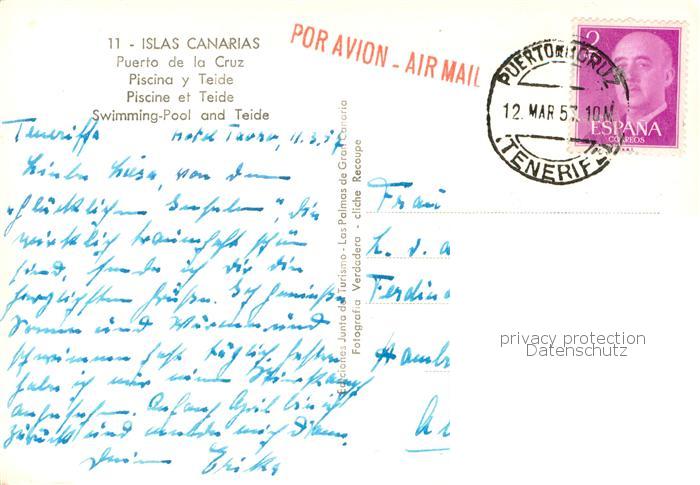 11 - ISLAS CANARIAS
Puerto de la Cruz
Piscina y Teide
Piscine et Teide
Swimming-Pool and Teide
POR AVION - AIR MAIL
PUERTO CRUZ
12. MAR 57. 10M
(TENERIFE)
2
ESPAÑA
CORREOS
Teneriffa Hotel Taoro, 11.3.57
von den
"Glücklichen Inseln", die
wirklich traumhaft schön
sind, sende ich Dir die
herzlichsten Grüße. Ich genieße
Sonne und Wärme und
schwimme fast täglich, gestern
habe ich mir einen Stierkampf
angesehen. Anfang April bin ich
zurück und melde mich dann.
Deine Erika
Ediciones Junta del Turismo - Las Palmas de Gran Canaria
Fotografia Verdadera - cliche Recoupe
Frau
L. v. a
Ferdin
Hamb
privacy protection
Datenschutz